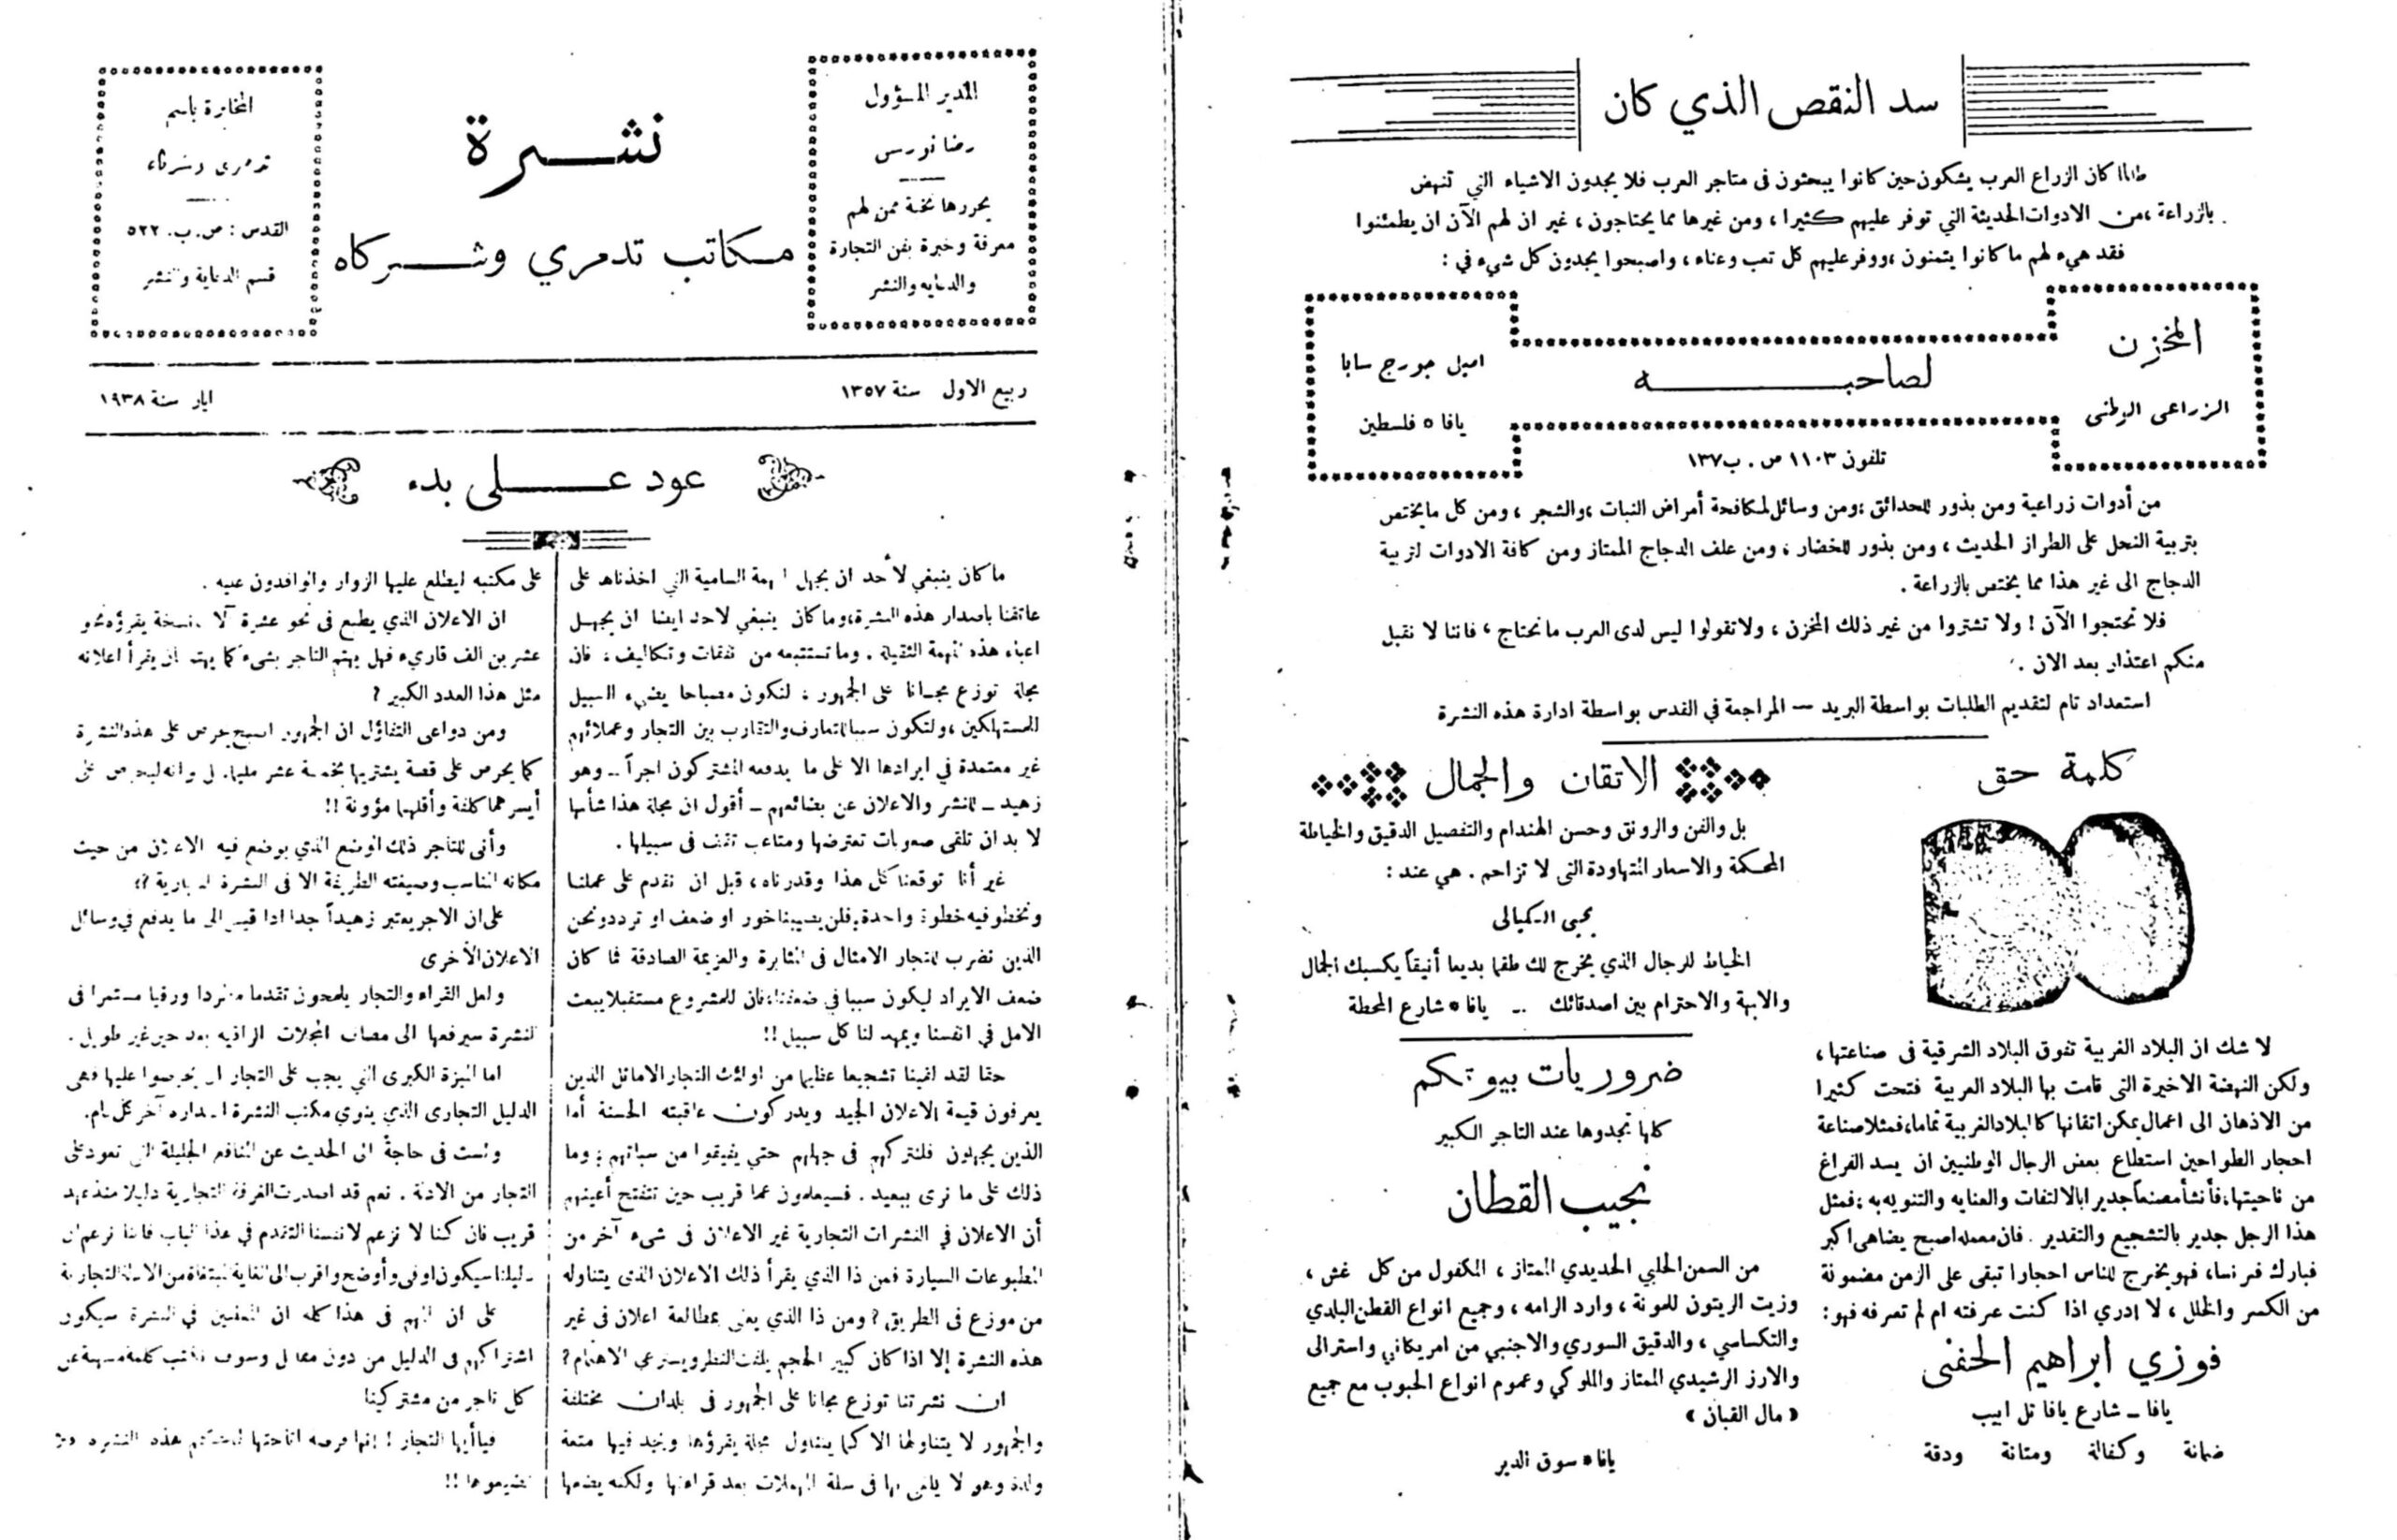 سد النقص الذي كان
طالما كان الزراع العرب يشكون حين كانوا يبحثون فى متاجر العرب فلا يجدون الاشياء التي تنهض
بالزراعة ،من الادوات الحديثة التي توفر عليهم كثيرا ، ومن غيرها مما يحتاجون ، غير ان لهم الآن ان يطمئنوا
فقد هيىء لهم ما كانوا يتمنون ،ووفر عليهم كل تعب وعناء ، واصبحوا يجدون كل شيء في :
المخزن
الزراعى الوطنى
لصاحبه
اميل جورج سابا
يافا ٥ فلسطين
تلفون ١١٠٣ ص . ب ١٣٧
من أدوات زراعية ومن بذور للحدائق ؛ومن وسائل لمكافحة أمراض النبات ،والشجر ، ومن كل ما يختص
بتربية النحل على الطراز الحديث ، ومن بذور للخضار ، ومن علف الدجاج الممتاز ومن كافة الادوات لتربية
الدجاج الى غير هذا مما يختص بالزراعة .
فلا تحتجوا الآن ! ولا تشتروا من غير ذلك المخزن ، ولا تقولوا ليس لدى العرب ما نحتاج ، فاننا لا نقبل
منكم اعتذار بعد الان .
استعداد تام لتقديم الطلبات بواسطة البريد — المراجعة في القدس بواسطة ادارة هذه النشرة
كلمة حق
لا شك ان البلاد الغربية تفوق البلاد الشرقية فى صناعتها ،
ولكن النهضة الاخيرة التى قامت بها البلاد العربية فتحت كثيرا
من الاذهان الى اعمال يمكن اتقانها كالبلاد الغربية تماما، فمثلا صناعة
احجار الطواحين استطاع بعض الرجال الوطنيين ان يسد الفراغ
من ناحيتها، فأنشأ مصنعاً جديرا بالالتفات والعنايه والتنويه به ؛ فمثل
هذا الرجل جدير بالتشجيع والتقدير . فان معمله اصبح يضاهى اكبر
فبارك فرنسا، فهو يخرج للناس احجارا تبقى على الزمن مضمونة
من الكسر والخلل ، لا ادري اذا كنت عرفته ام لم تعرفه فهو:
فوزي ابراهيم الحفنى
يافا ـ شارع يافا تل ابيب
ضمانة وكفالة ومتانة ودقة
الاتقان والجمال
بل والفن والرونق وحسن الهندام والتفصيل الدقيق والخياطة
المحكمة والاسعار المتهاودة التى لا تزاحم . هي عند :
يحيى الكيالى
الخياط للرجال الذي يخرج لك طقما بديعا أنيقاً يكسبك الجمال
والابهة والاحترام بين اصدقائك ـ يافا ٥ شارع المحطة
ضروريات بيوتكم
كلها تجدوها عند التاجر الكبير
نجيب القطان
من السمن الحلبي الحديدي الممتاز ، المكفول من كل غش ،
وزيت الزيتون للمونة ، وارد الرامه ، وجميع انواع القطن البلدي
والتكساسي ، والدقيق السوري والاجنبي من امريكاني واسترالى
والارز الرشيدي الممتاز والملوكي وعموم انواع الحبوب مع جميع
« مال القبان »
يافا ٥ سوق الدير
المدير المسؤول
رضا نورس
يحررها نخبة ممن لهم
معرفة وخبرة بفن التجارة
والدعايه والنشر
نشرة
مكاتب تدمري وشركاه
المخابرة باسم
تدمرى وشركاه
القدس : ص . ب . ٥٢٢
قسم الدعاية والنشر
ربيع الاول سنة ١٣٥٧
ايار سنة ١٩٣٨
عود على بدء
ما كان ينبغي لأحد ان يجهل المهمة السامية التي اخذناها على
عاتقنا باصدار هذه النشرة، وما كان ينبغي لاحد ايضا ان يجهل
اعباء هذه المهمة الثقيلة . وما تستتبعه من نفقات وتكاليف ، فان
مجلة توزع مجانا على الجمهور ، لتكون مصباحا يضيء السبيل
للمستهلكين ، ولتكون سببا للتعارف والتقارب بين التجار وعملائهم
غير معتمدة في ايرادها الا على ما يدفعه المشتركون اجراً ـ وهو
زهيد ـ للنشر والاعلان عن بضائعهم ـ أقول ان مجلة هذا شأنها
لا بد ان تلقى صعوبات تعترضها ومتاعب تقف فى سبيلها .
غير أنا توقعنا كل هذا وقدرناه ، قبل ان نقدم على عملنا
ونخطو فيه خطوة واحدة، فلن يصيبنا خور او ضعف او تردد ونحن
الذين نضرب للتجار الامثال فى المثابرة والعزيمة الصادقة فما كان
ضعف الايراد ليكون سببا في ضعفنا، فان للمشروع مستقبلا يبعث
الامل في انفسنا ويمهد لنا كل سبيل !!
حقا لقد لقينا تشجيعا عظيما من اولئك التجار الاماثل الذين
يعرفون قيمة الاعلان الجيد ويدركون عاقبته الحسنة أما
الذين يجهلون فلنتركهم فى جهلهم حتي يفيقوا من سباتهم ؛ وما
ذلك على ما نرى ببعيد . فسيعلمون عما قريب حين تتفتح أعينهم
أن الاعلان في النشرات التجارية غير الاعلان فى شىء آخر من
المطبوعات السيارة فمن ذا الذي يقرأ ذلك الاعلان الذى يتناوله
من موزع فى الطريق ؟ ومن ذا الذي يعنى بمطالعة اعلان فى غير
هذه النشرة إلا اذا كان كبير الحجم يلفت النظر ويسترعي الاهتمام ؟
ان نشرتنا توزع مجانا على الجمهور فى بلدان مختلفة
والجمهور لا يتناولها الا كما يتناول مجلة يقرؤها ويجد فيها متعة
ولذة وهو لا يلقى بها فى سلة المهملات بعد قراءتها ولكنه يضعها
على مكتبه ليطلع عليها الزوار والوافدون عليه .
ان الاعلان الذي يطبع فى نحو عشرة آلاف نسخة يقرؤه نحو
عشرين الف قاريء فهل يهتم التاجر بشىء كما يهتم ان يقرأ اعلانه
مثل هذا العدد الكبير ؟
ومن دواعى التفاؤل ان الجمهور اصبح يحرص على هذه النشرة
كما يحرص على قصة يشتريها بخمسة عشر مليما. وانه ليحرص على
أيسرهما كلفة وأقلهما مؤونة !!
وأنى للتاجر ذلك الوضع الذي يوضع فيه الاعلان من حيث
مكانه المناسب وصيغته الطريفة الا فى النشرة التجارية ؟!
على ان الاجر يعتبر زهيداً جدا اذا قيس الى ما يدفع في وسائل
الاعلان الأخرى
ولعل القراء والتجار يلمحون تقدما مطردا ورقيا مستمرا فى
النشرة سيرفعها الى مصاف المجلات الراقيه بعد حين غير طويل .
اما الميزة الكبرى التي يجب على التجار ان يحرصوا عليها فهى
الدليل التجارى الذي ينوي مكتب النشرة اصداره آخر كل عام.
ولست فى حاجة الى الحديث عن المنافع الجليلة التي تعود على
التجار من الادلة . نعم قد اصدرت الغرفة التجارية دليلا منذ عهد
قريب فان كنا لا نزعم لانفسنا التقدم في هذا الباب فاننا نزعم ان
دليلنا سيكون اوفى وأوضح واقرب الى الغاية المبتغاة من الادلة التجارية
على ان المهم فى هذا كله ان المعلنين في النشرة سيكون
اشتراكهم فى الدليل من دون مقابل وسوف نكتب كلمة مسهبة عن
كل تاجر من مشتركينا
فياأيها التجار ! انها فرصة اتاحتها لكم هذه النشرة فلا
تضيعوها !!